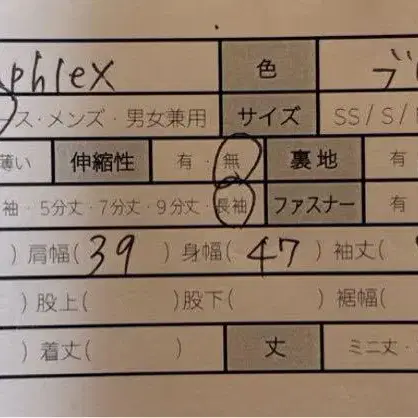 phlex 色 ブ
ス・メンズ・男女兼用 サイズ SS / S /
薄い 伸縮性 有・無 裏地 有
袖・5分丈・7分丈・9分丈・長袖 ファスナー 有
) 肩幅( 39 ) 身幅( 47 ) 袖丈(
) 股上( ) 股下( ) 裾幅(
) 着丈( ) 丈 ミニ丈・